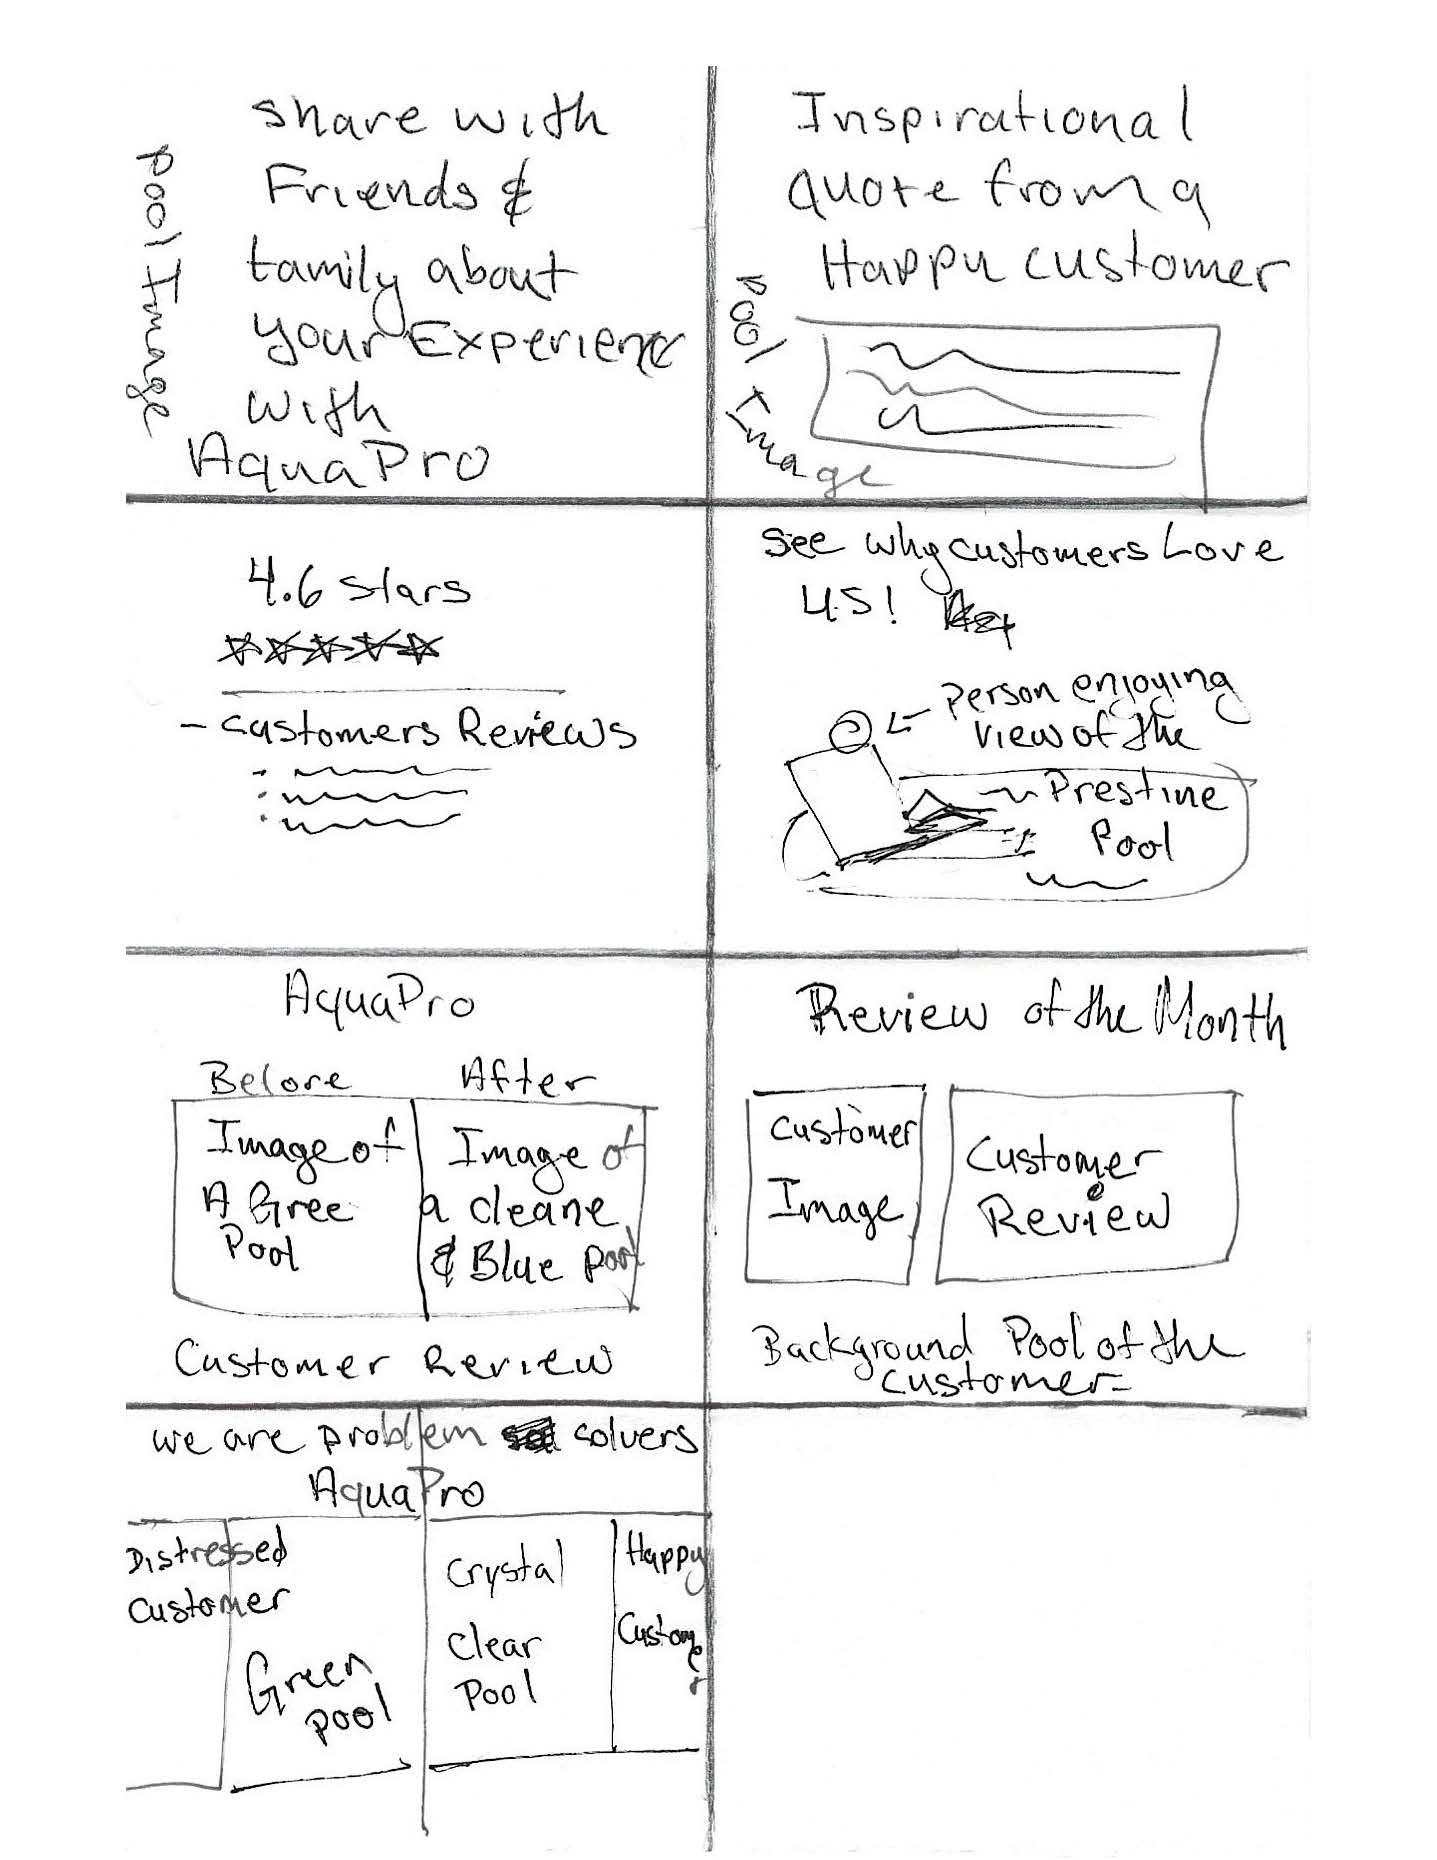 Pool Image
share with
Friends &
family about
your Experience
with
AquaPro
Inspirational
Quote from a
Happy customer
Pool Image
4.6 stars
- Customers Reviews
See why customers Love
us!
Person enjoying
view of the
Prestine
Pool
AquaPro
Before After
Image of
A Gree
Pool
Image of
a cleane
& Blue pool
Customer Review
Review of the Month
Customer
Image
Customer
Review
Background Pool of the
customer
we are problem solvers
AquaPro
Distressed
customer
Green
pool
Crystal
Clear
Pool
Happy
Customer